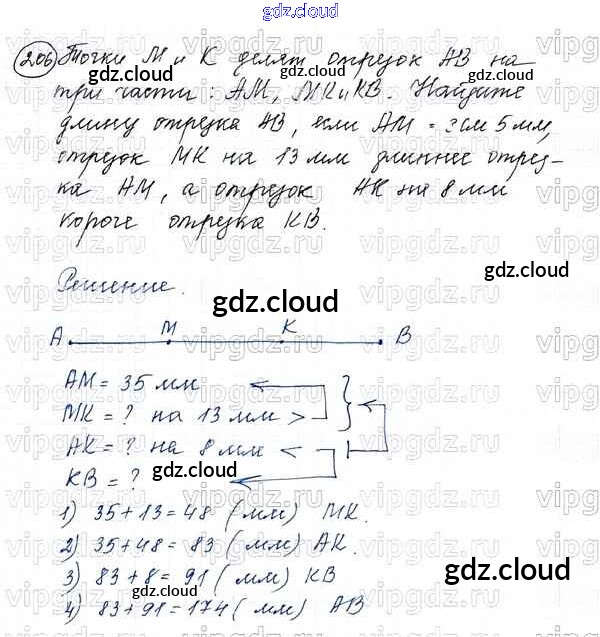 gdz.cloud
206 Точки М и К делят отрезок АВ на
три части: АМ, МК и КВ. Найдите
длину отрезка АВ, если АМ = 3см 5мм,
отрезок МК на 13 мм длиннее отрез-
ка АМ, а отрезок АК на 8 мм
короче отрезка КВ.
Решение.
gdz.cloud
А М К В
АМ = 35 мм
МК = ? на 13 мм >
АК = ? на 8 мм <
КВ = ?
1) 35+13=48 (мм) МК.
2) 35+48= 83 (мм) АК.
3) 83+8= 91 (мм) КВ
4) 83+91=174 (мм) АВ
gdz.cloud
vipgdz.ru